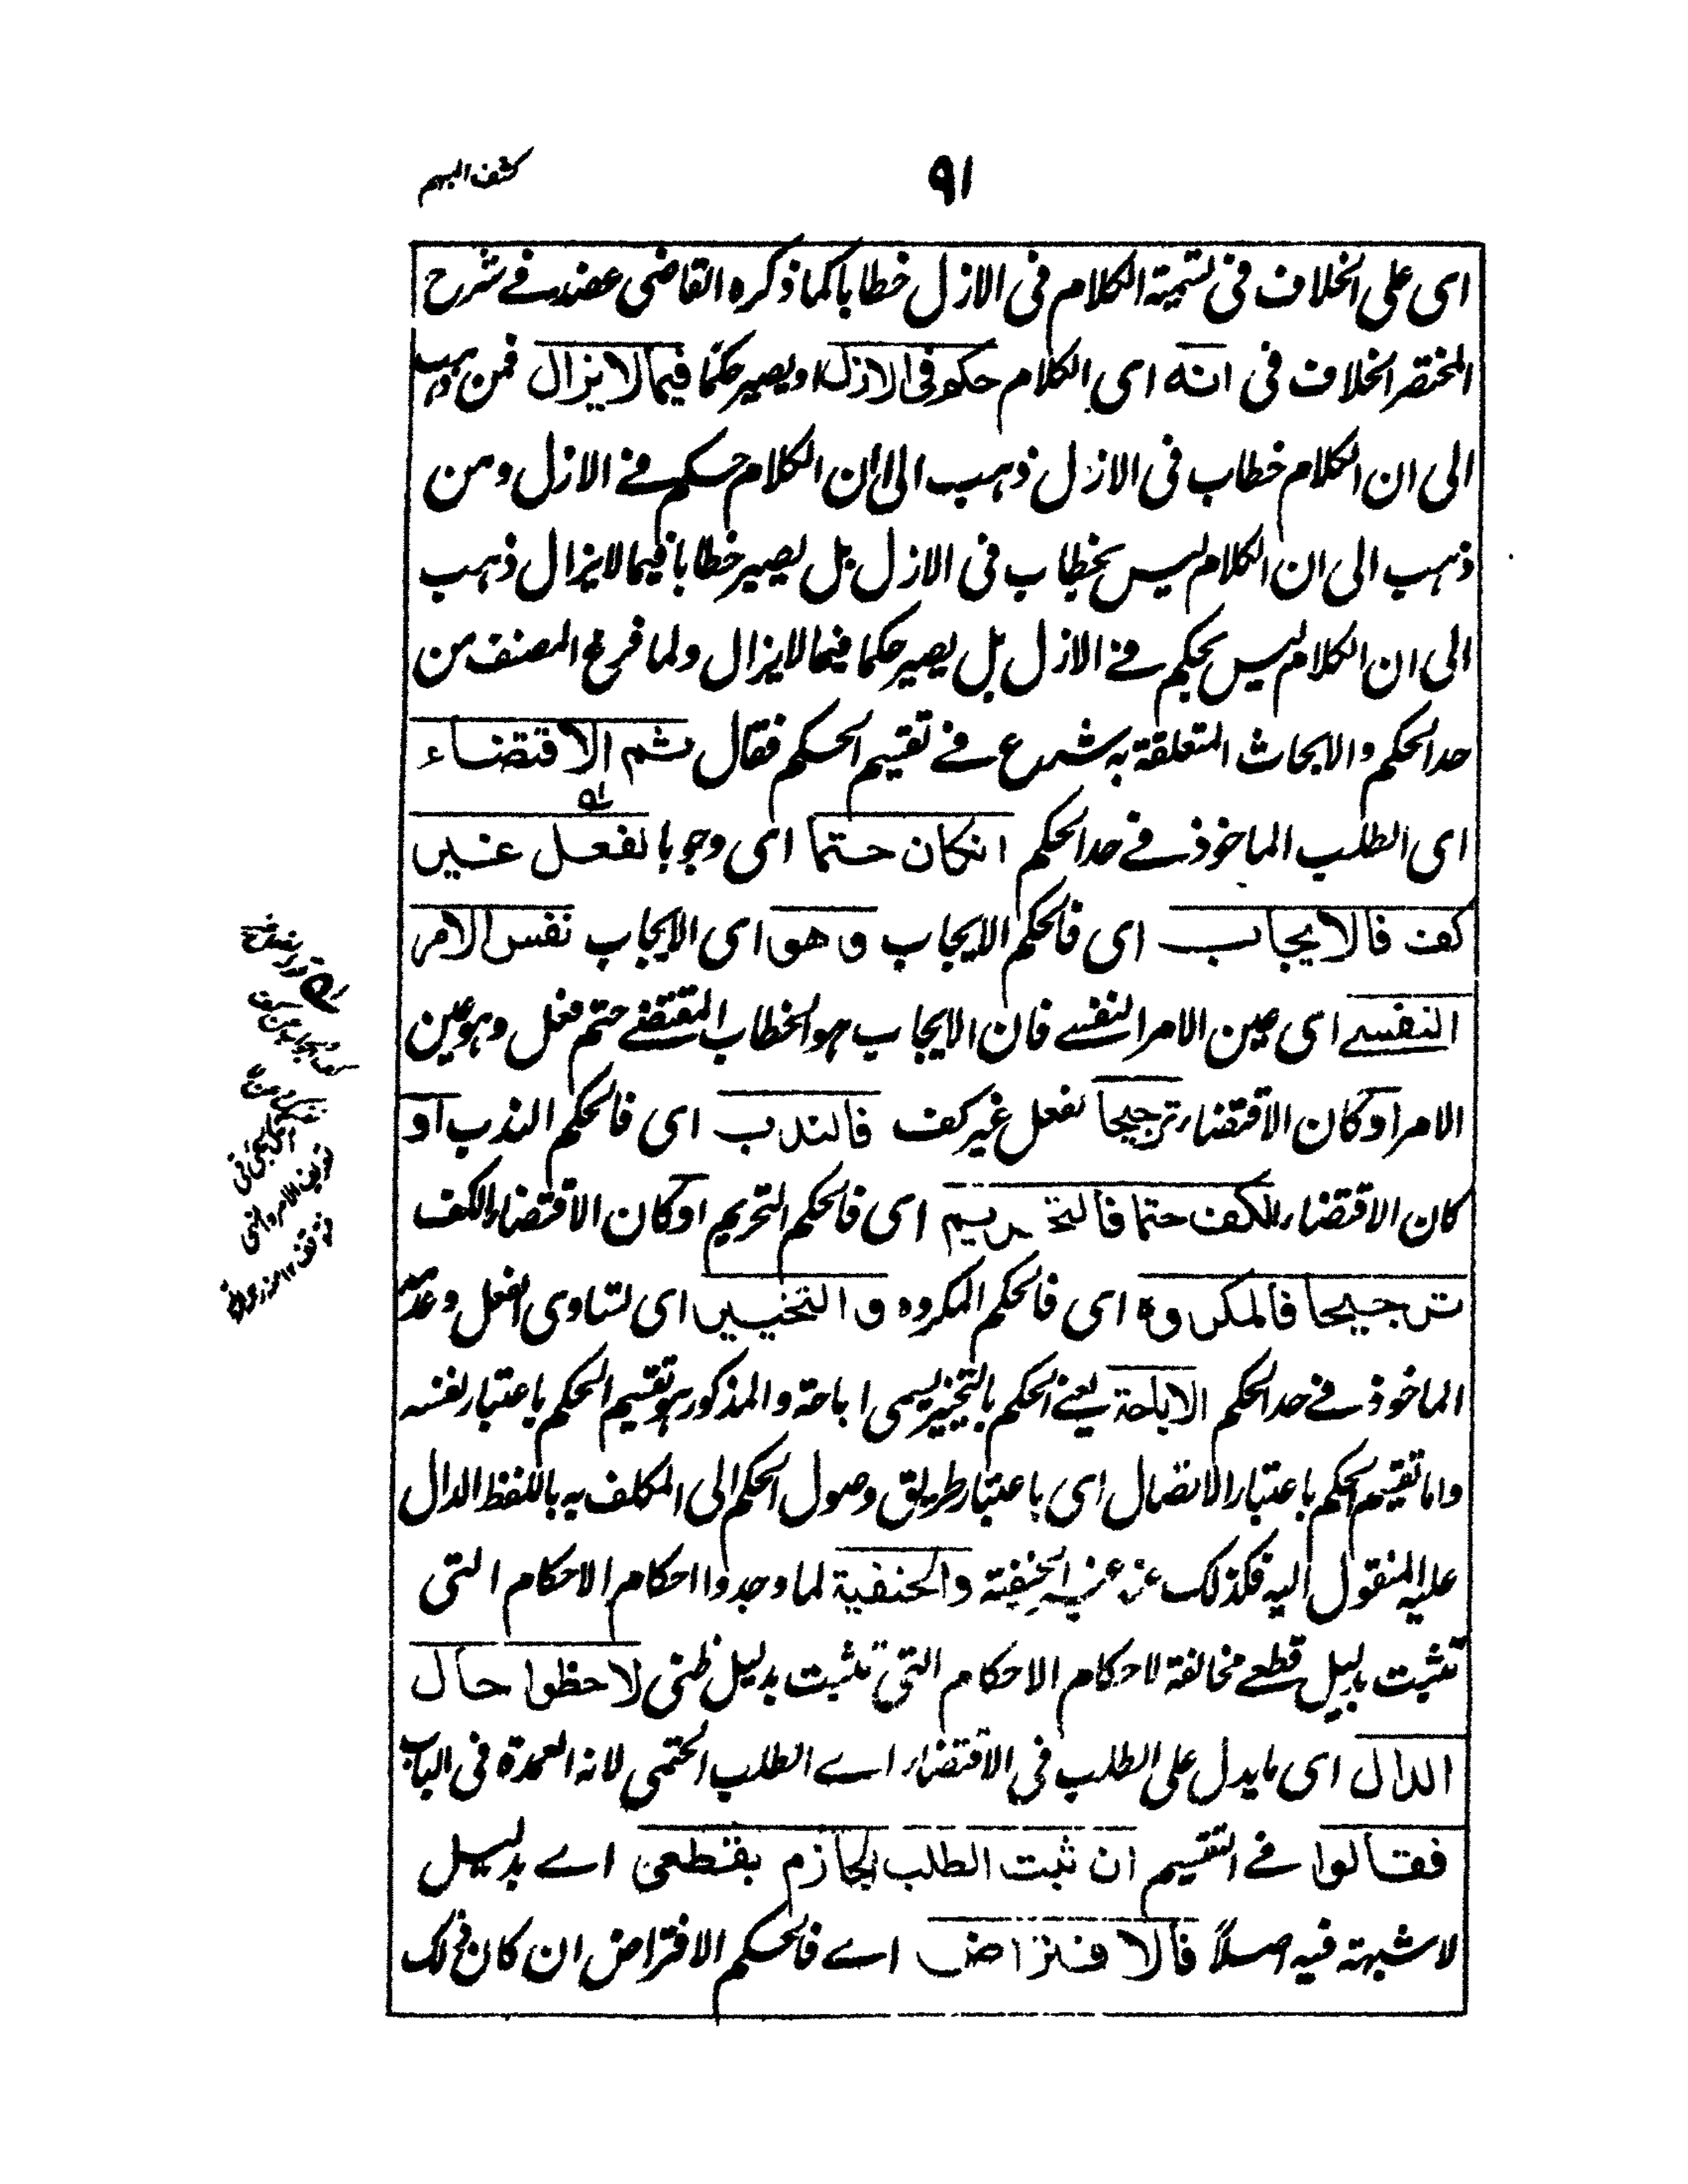 كشف المبهم
٩١
اى على الخلاف فى تسمية الكلام فى الازل خطابا كما ذكره القاضى عضد فے شرح
المختصر الخلاف فى انه اى الكلام حكم فى الازل او يصير حكما فيما لا يزال فمن ذهب
الى ان الكلام خطاب فى الازل ذهب الى ان الكلام حكم فے الازل ومن
ذهب الى ان الكلام ليس بخطاب فى الازل بل يصير خطابا فيما لايزال ذهب
الى ان الكلام ليس بحكم فے الازل بل يصير حكما فيما لايزال ولما فرغ المصنف من
حد الحكم والابحاث المتعلقة به شرع فے تقسيم الحكم فقال ثم الاقتضاء
اى الطلب الماخوذ فے حد الحكم انكان حتما اى وجوبا لفعل غير
كف فالايجاب اى فالحكم الايجاب وهو اى الايجاب نفس الامر
النفسے اى عين الامر النفسے فان الايجاب هو الخطاب المقتضے حتم فعل وهو عين
الامر او كان الاقتضاء ترجيحا لفعل غير كف فالندب اى فالحكم الندب او
كان الاقتضاء للكف حتما فالتحريم اى فالحكم التحريم او كان الاقتضاء للكف
ترجيحا فالمكروه اى فالحكم المكروه والتخيير اى لتساوى الفعل وعدمه
الماخوذ فے حد الحكم الاباحة يعنے الحكم بالتخيير يسمى اباحة والمذكور هو تقسيم الحكم باعتبار نفسه
واما تقسيم الحكم باعتبار الاتصال اى باعتبار طريق وصول الحكم الى المكلف به باللفظ الدال
عليه المنقول اليه فكذلك عند غير الحنفية والحنفية لما وجدوا احكام الاحكام التى
تثبت بدليل قطعے مخالفة لاحكام الاحكام التى تثبت بدليل ظنى لاحظوا حال
الدال اى ما يدل على الطلب فى الاقتضاء اے الطلب الحتمى لانه العمدة فى الباب
فقالوا فے التقسيم ان ثبت الطلب الجازم بقطعى اے بدليل
لا شبهة فيه اصلاً فالافتراض اے فالحكم الافتراض ان كان ذلك